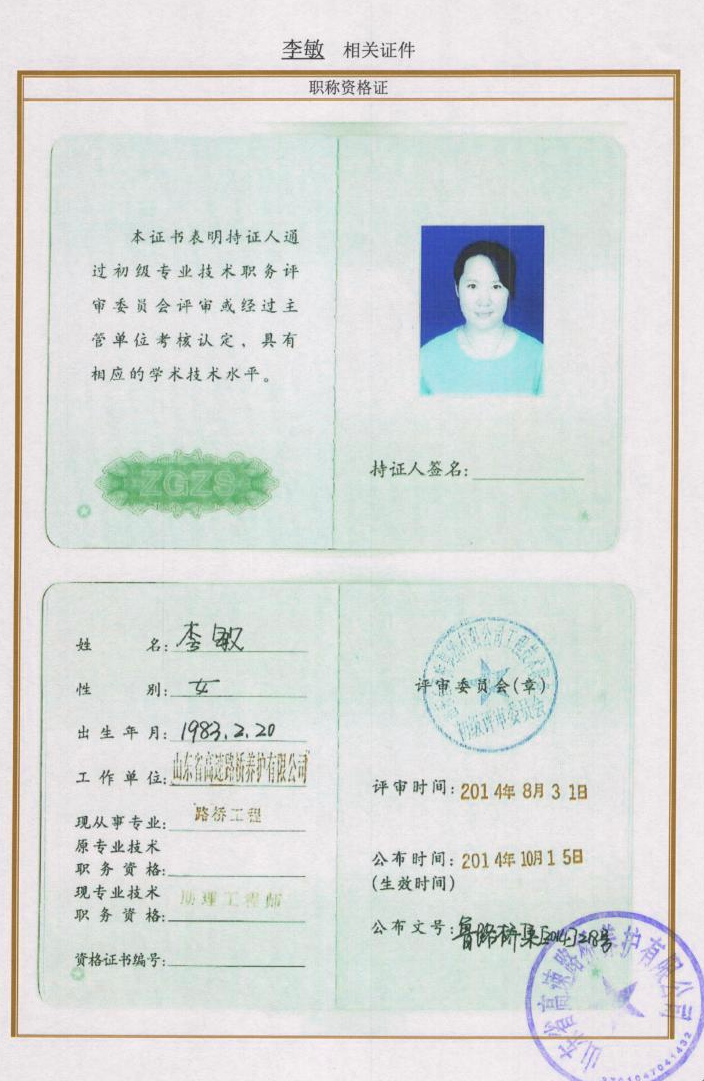 李敏 相关证件
职称资格证
本证书表明持证人通
过初级专业技术职务评
审委员会评审或经过主
管单位考核认定，具有
相应的学术技术水平。
ZGZS
持证人签名：
姓 名：李敏
性 别：女
出生年月：1983.2.20
工作单位：山东省高速路桥养护有限公司
现从事专业：路桥工程
原专业技术
职务资格：
现专业技术
职务资格：助理工程师
资格证书编号：
评审委员会（章）
初级评审委员会
评审时间：2014年8月31日
公布时间：2014年10月15日
（生效时间）
公布文号：鲁路桥集[2014]28号
山东省高速路桥养护有限公司